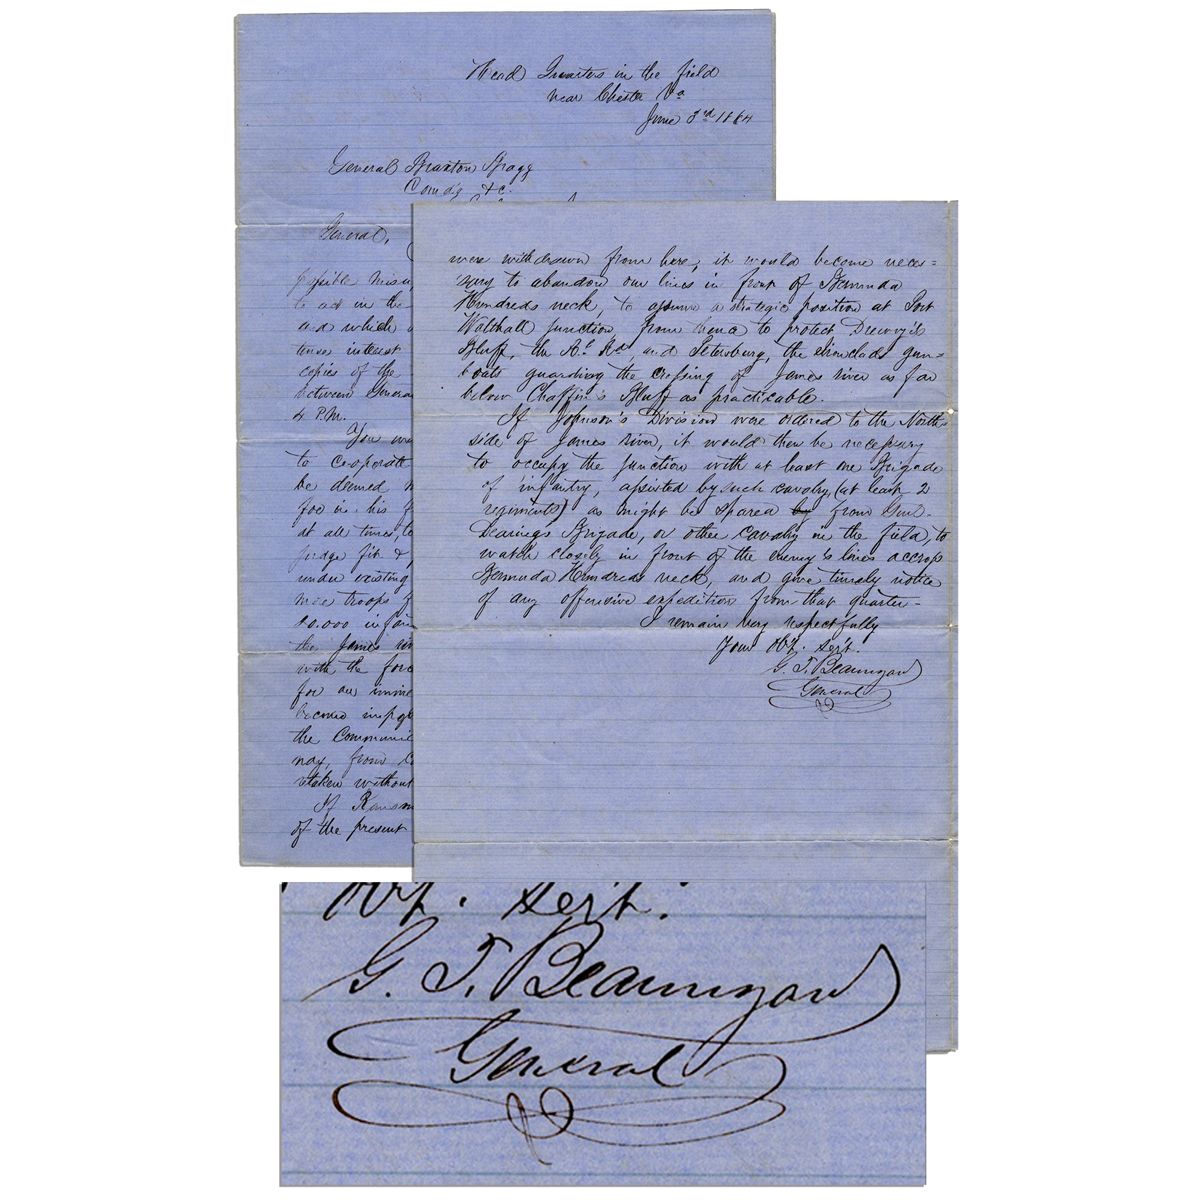 Head Quarters in the field
near Chester Va
June 3rd 1864
General Braxton Bragg
Comdg &c.
General,
possible
to act in the
and which
tense interest
copies of the
between General
4 P.M.
You
to cooperate
be deemed
foe in his
at all times, to
judge fit &
under existing
more troops
infan
the James
with the force
for an imme
become
the Communic
nay, from
retaken without
If Ransom
of the present
were withdrawn from here, it would become neces-
sary to abandon our lines in front of Bermuda
Hundreds neck, to assume a strategic position at Port
Walthall Junction, from hence to protect Drewry's
Bluff, the Rl. Rd. and Petersburg, the ironclads gun-
boats guarding the crossing of James river as far
below Chaffin's Bluff as practicable.
If Johnson's Division were ordered to the North-
side of James river, it would then be necessary
to occupy the junction with at least one Brigade
of infantry, assisted by such cavalry, (at least 2
regiments) as might be spared by from Genl.
Dearing's Brigade, or other cavalry in the field, to
watch closely in front of the enemy's lines across
Bermuda Hundreds neck, and give timely notice
of any offensive expedition from that quarter-
I remain very respectfully
Your Obt. Servt.
G. T. Beauregard
General
Obt. Servt.
G. T. Beauregard
General